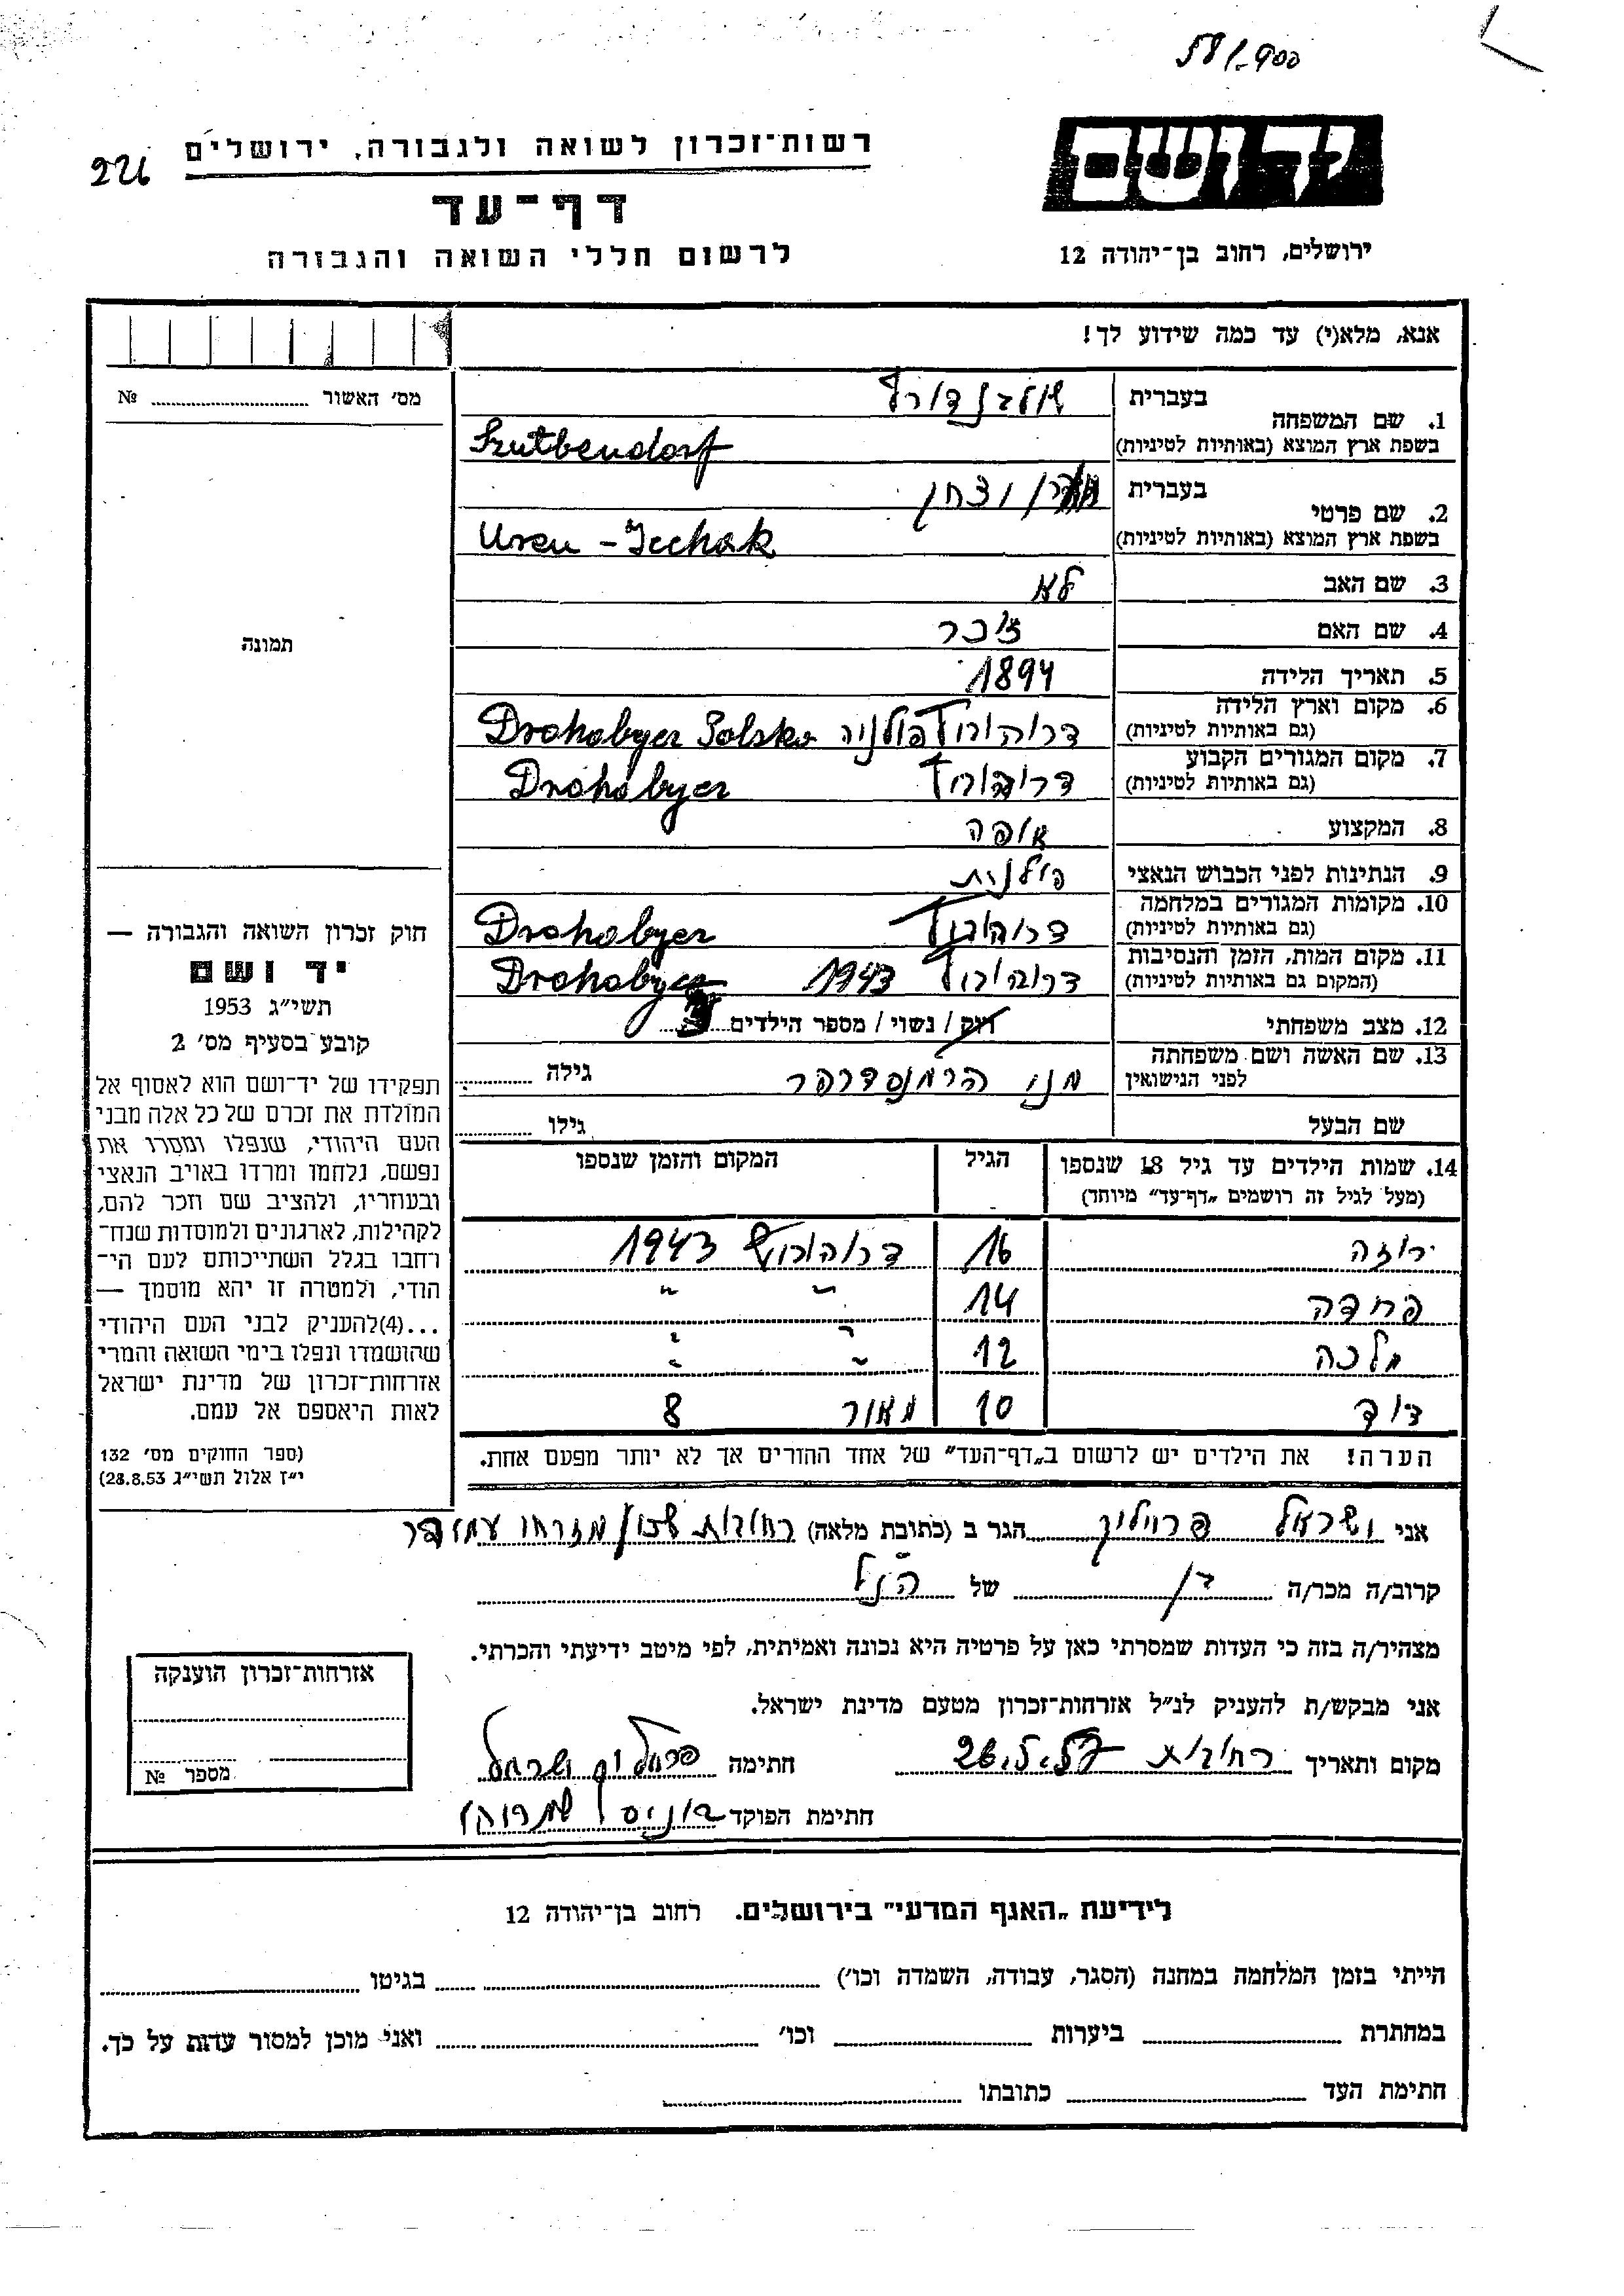 58/900
226
רשות־זכרון לשואה ולגבורה, ירושלים
דף־עד
לרשום חללי השואה והגבורה
יד ושם
ירושלים, רחוב בן־יהודה 12
אנא, מלא(י) עד כמה שידוע לך!
מס׳ האשור № ............
תמונה
1. שם המשפחה בעברית
בשפת ארץ המוצא (באותיות לטיניות)
2. שם פרטי בעברית
בשפת ארץ המוצא (באותיות לטיניות) Uren - Icchak
3. שם האב לא
4. שם האם זוכר
5. תאריך הלידה 1894
6. מקום וארץ הלידה (גם באותיות לטיניות) דרוהוביץ פולניה Drohobycz Polska
7. מקום המגורים הקבוע (גם באותיות לטיניות) דרוהוביץ Drohobycz
8. המקצוע אופה
9. הנתינות לפני הכבוש הנאצי פולנית
10. מקומות המגורים במלחמה (גם באותיות לטיניות) דרוהוביץ Drohobycz
11. מקום המות, הזמן והנסיבות (המקום גם באותיות לטיניות) דרוהוביץ 1943 Drohobycz
12. מצב משפחתי רוק / נשוי / מספר הילדים
13. שם האשה ושם משפחתה לפני הנישואין גילה ............
שם הבעל גילו ............
14. שמות הילדים עד גיל 18 שנספו (מעל לגיל זה רושמים „דף־עד״ מיוחד) הגיל המקום והזמן שנספו
רוזה 16 דרוהוביץ 1943
14 ״ ״
מלכה 12 ״ ״
דוד 10 8
הערה! את הילדים יש לרשום ב„דף־העד״ של אחד ההורים אך לא יותר מפעם אחת.
חוק זכרון השואה והגבורה —
יד ושם
תשי״ג 1953
קובע בסעיף מס׳ 2
תפקידו של יד־ושם הוא לאסוף אל
המולדת את זכרם של כל אלה מבני
העם היהודי, שנפלו ומסרו את
נפשם, נלחמו ומרדו באויב הנאצי
ובעוזריו, ולהציב שם וזכר להם,
לקהילות, לארגונים ולמוסדות שנח־
רבו בגלל השתייכותם לעם הי־
הודי, ולמטרה זו יהא מוסמך —
...(4)להעניק לבני העם היהודי
שהושמדו ונפלו בימי השואה והמרי
אזרחות־זכרון של מדינת ישראל
לאות היאספם אל עמם.
(ספר החוקים מס׳ 132
י״ז אלול תשי״ג 28.8.53)
אני ישראל הגר ב (כתובת מלאה) רחובות שכון מזרחי
קרוב/ה מכר/ה של הנ״ל
מצהיר/ה בזה כי העדות שמסרתי כאן על פרטיה היא נכונה ואמיתית, לפי מיטב ידיעתי והכרתי.
אני מבקש/ת להעניק לנ״ל אזרחות־זכרון מטעם מדינת ישראל.
מקום ותאריך רחובות 26.5.57 חתימה ישראל
חתימת הפוקד
אזרחות־זכרון הוענקה
מספר №
לידיעת „האגף המדעי״ בירושלים. רחוב בן־יהודה 12
הייתי בזמן המלחמה במחנה (הסגר, עבודה, השמדה וכו׳) ............ בגיטו ............
במחתרת ............ ביערות ............ וכו׳ ............ ואני מוכן למסור עדות על כך.
חתימת העד ............ כתובתו ............